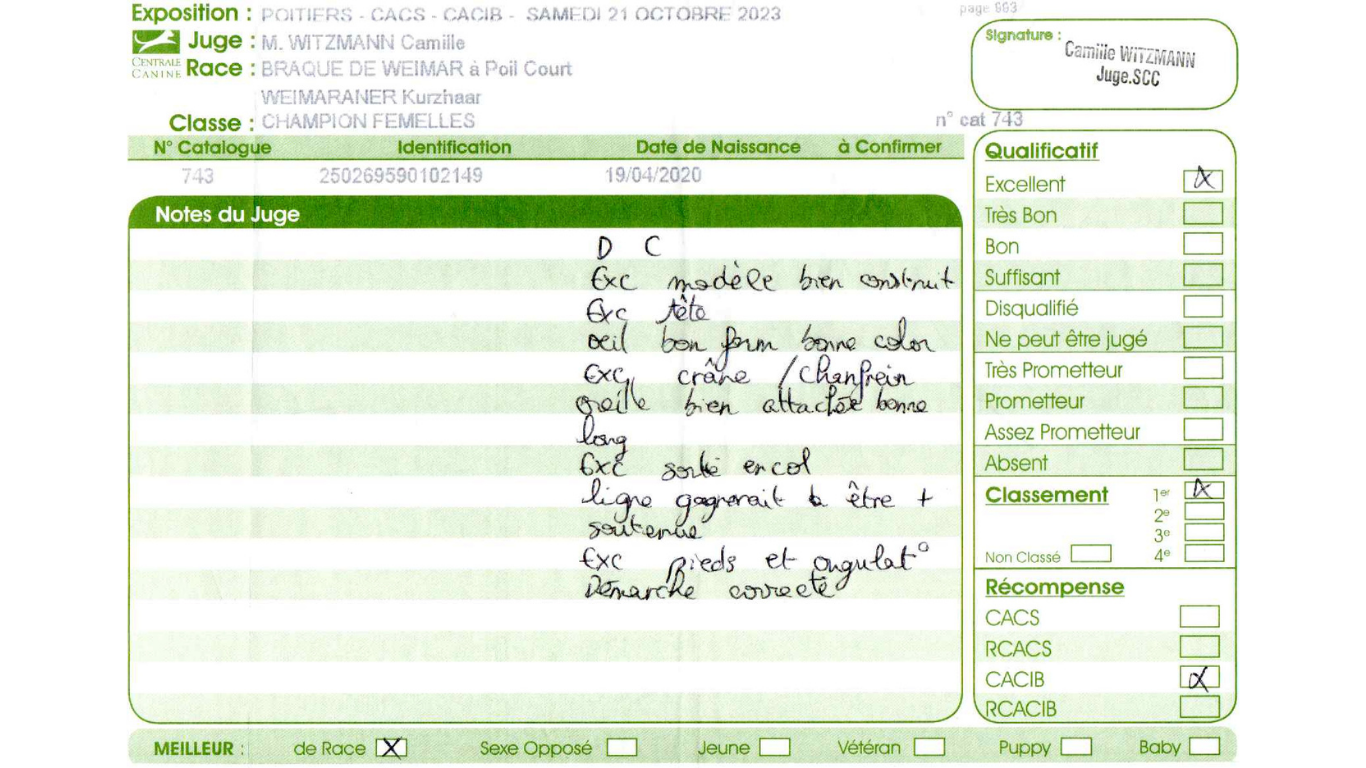 Exposition : POITIERS - CACS - CACIB - SAMEDI 21 OCTOBRE 2023
page 663
CENTRALE CANINE
Juge : M. WITZMANN Camille
Race : BRAQUE DE WEIMAR à Poil Court
WEIMARANER Kurzhaar
Classe : CHAMPION FEMELLES
n° cat 743
Signature :
Camille WITZMANN
Juge.SCC
N° Catalogue Identification Date de Naissance à Confirmer
743 250269590102149 19/04/2020
Notes du Juge
D C
Exc modèle bien construit
Exc tête
oeil bon form bonne color
Exc crâne / Chanfrein
oreille bien attachée bonne
long
Exc sortie encol
ligne gagnerait à être +
soutenue
Exc pieds et angulat°
Démarche correcte
Qualificatif
Excellent X
Très Bon
Bon
Suffisant
Disqualifié
Ne peut être jugé
Très Prometteur
Prometteur
Assez Prometteur
Absent
Classement 1er X
2e
3e
Non Classé 4e
Récompense
CACS
RCACS
CACIB X
RCACIB
MEILLEUR : de Race X Sexe Opposé Jeune Vétéran Puppy Baby